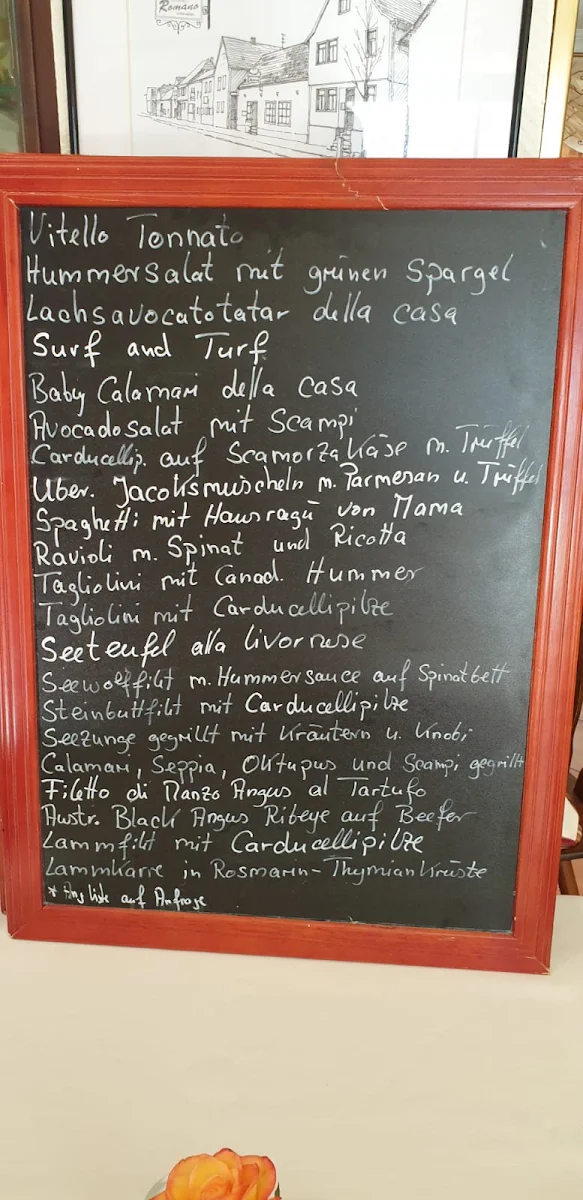 Romano
Vitello Tonnato
Hummersalat mit grünen Spargel
Lachsavocatotatar della casa
Surf and Turf
Baby Calamari della casa
Avocadosalat mit Scampi
Carducellip. auf Scamorza Käse m. Trüffel
Über. Jacobsmuscheln m. Parmesan u. Trüffel
Spaghetti mit Hausragú von Mama
Ravioli m. Spinat und Ricotta
Tagliolini mit Canad. Hummer
Tagliolini mit Carducellipilze
Seeteufel alla livornese
Seewolffilet m. Hummersauce auf Spinatbett
Steinbuttfilet mit Carducellipilze
Seezunge gegrillt mit Kräutern u. Knobi
Calamari, Seppia, Oktupus und Scampi gegrillt
Filetto di Manzo Angus al Tartufo
Austr. Black Angus Ribeye auf Beefer
Lammfilet mit Carducellipilze
Lammkarre in Rosmarin-Thymiankruste
* liste auf Anfrage